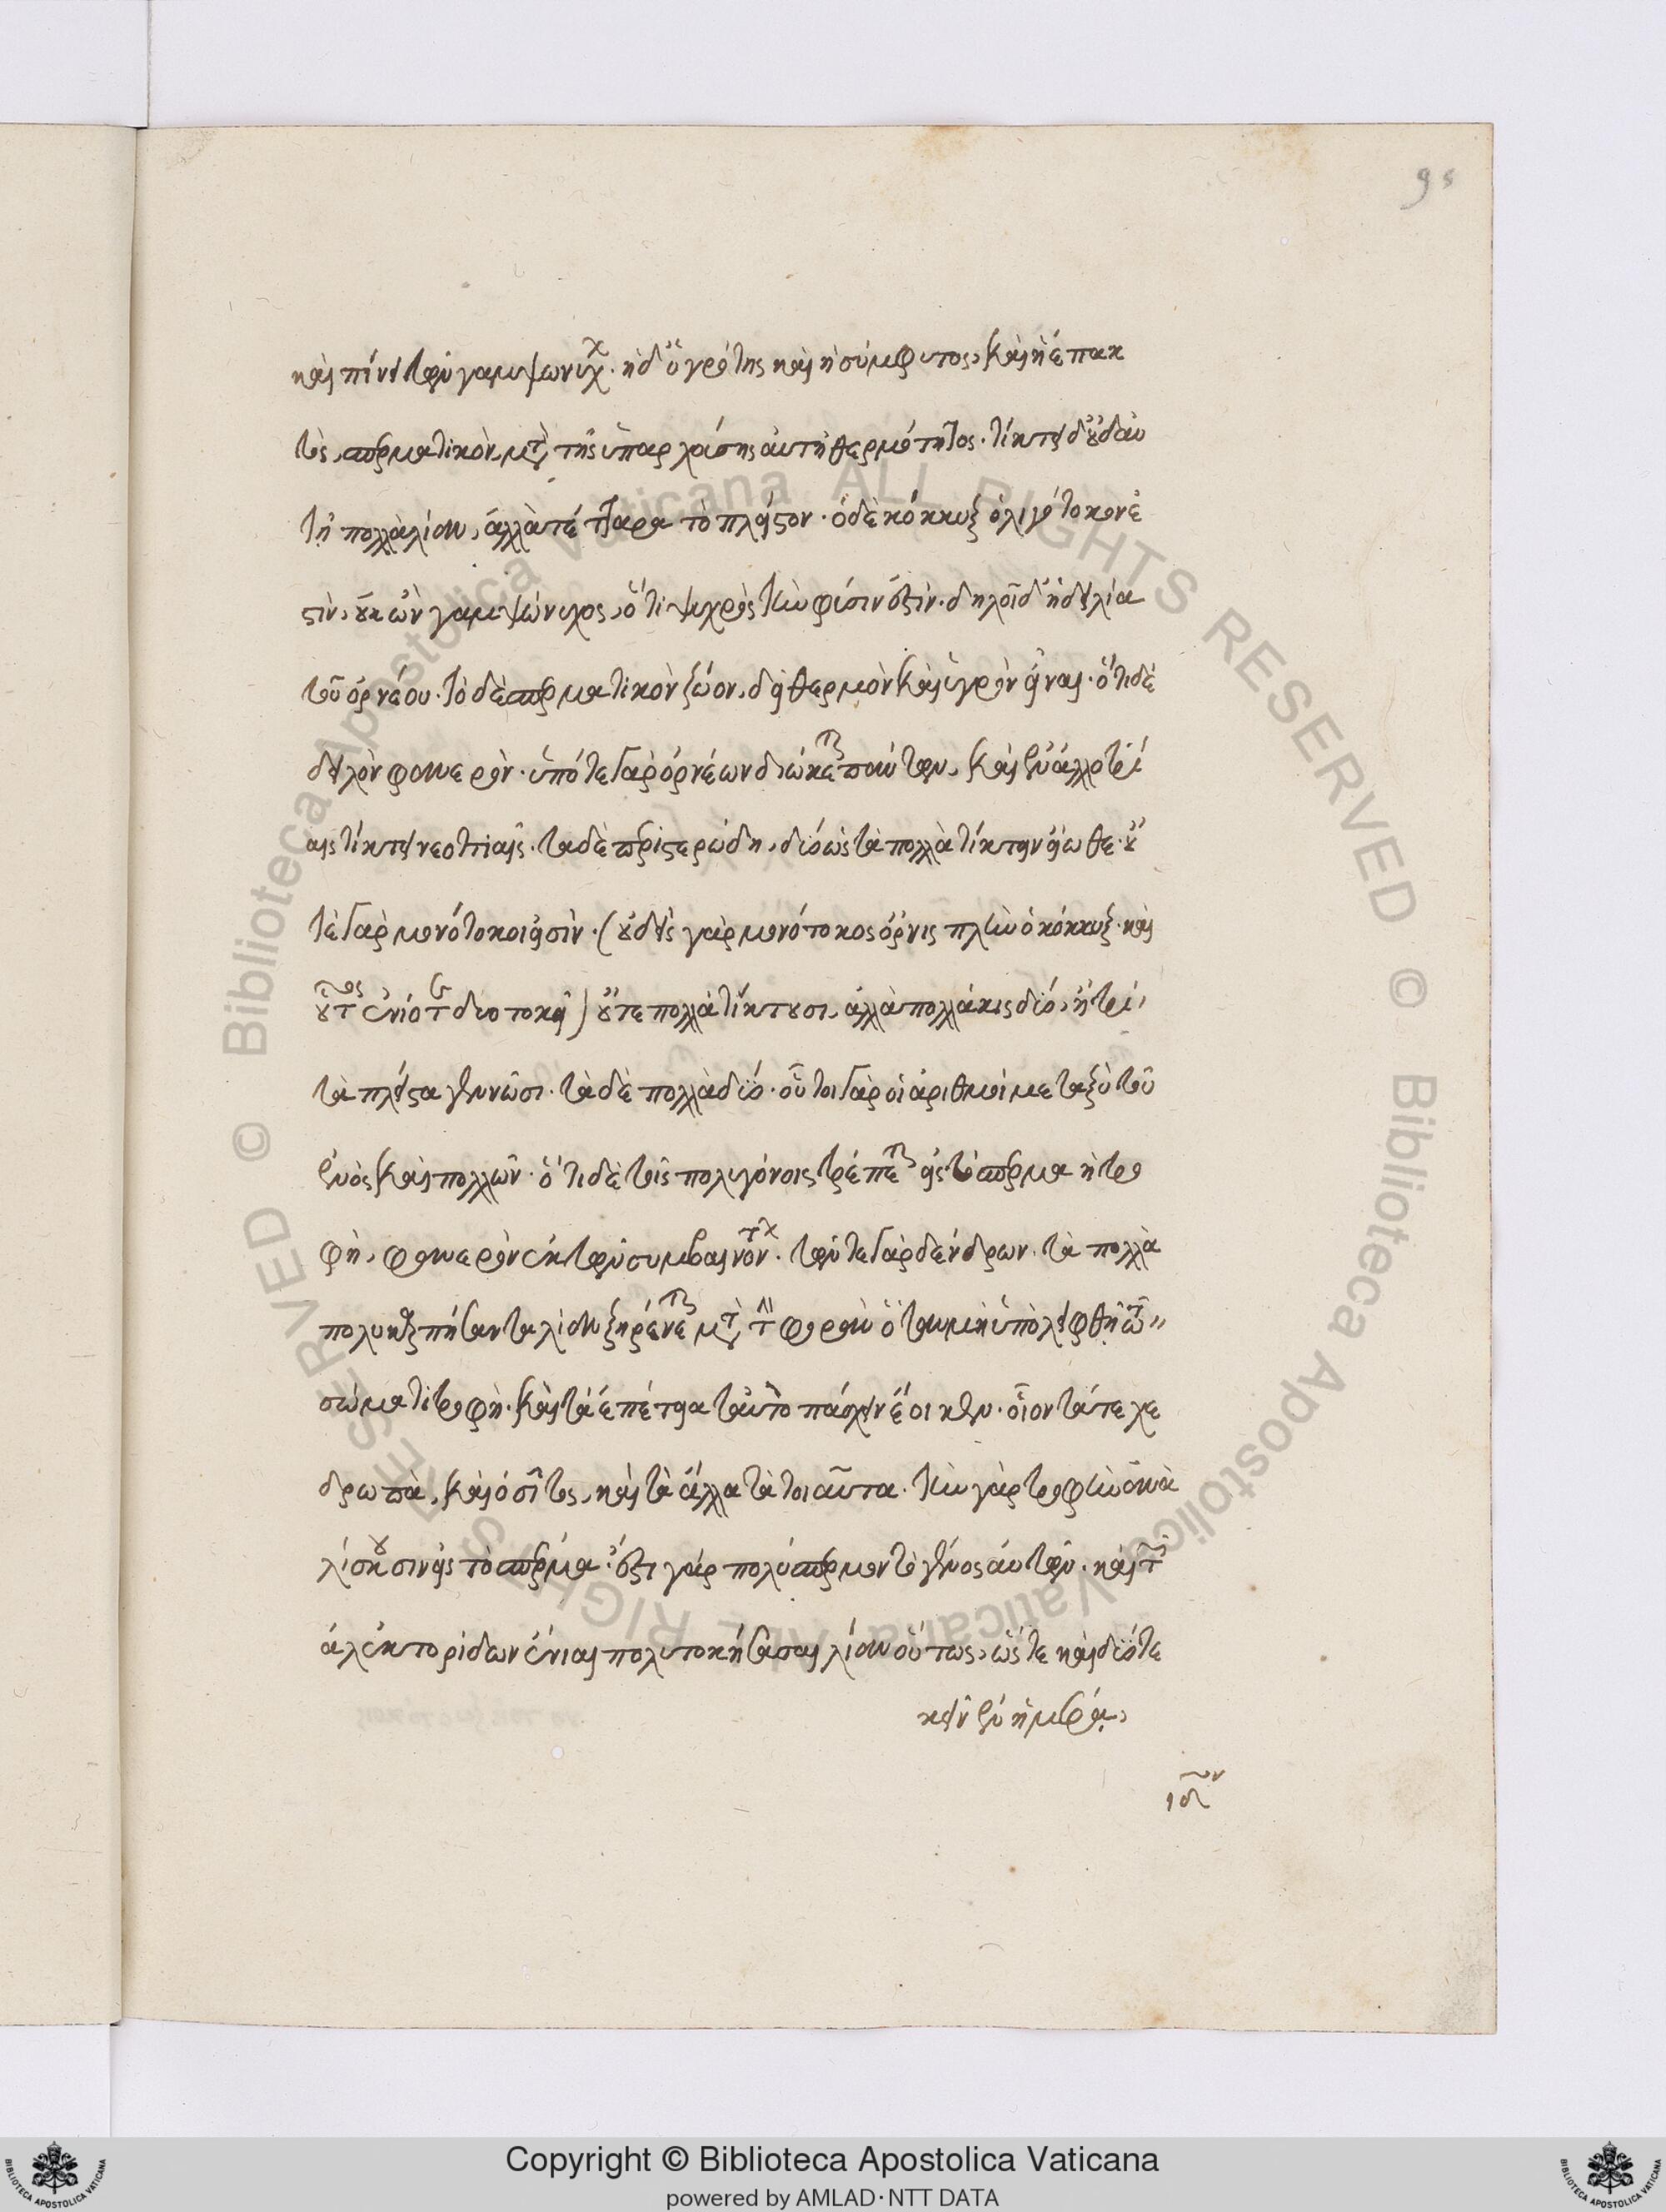 95
καὶ πίνει τῶν γαμψωνύχ. ἡ δ' ὑγρότης καὶ ἡ σύμφυτος, καὶ ἡ ἐπακ
τὸς, σπερματικὸν, μετὰ τῆς ὑπαρχούσης αὐτῇ θερμότητος. τίκτει δ' οὐδ' αὐ
τὴ πολλὰ λίαν, ἀλλὰ τέτταρα τὸ πλεῖστον. ὁ δὲ κόκκυξ ὀλιγοτόκον ἐ
στὶν, οὐκ ὢν γαμψώνυχος, ὅτι ψυχρὸς τὴν φύσιν ἐστίν. δηλοῖ δ' ἡ δειλία
τοῦ ὀρνέου. τὸ δὲ σπερματικὸν ζῶον, δεῖ θερμὸν καὶ ὑγρὸν εἶναι. ὅτι δὲ
δειλὸν φανερόν. ὑπό τε γὰρ ὀρνέων διώκεται πάντων, καὶ ἐν ἀλλοτρί
αις τίκτει νεοττιαῖς. τα δὲ περιστερώδη, δύο ὡς τὰ πολλὰ τίκτειν εἴωθε. οὔ
τε γὰρ μονότοκοι εἰσὶν. (οὐδεὶς γὰρ μονότοκος ὄρνις πλὴν ὁ κόκκυξ. καὶ
οὗτος ἐνίοτε διοτοκεῖ) οὔτε πολλὰ τίκτουσι, ἀλλὰ πολλάκις δύο, ἢ τρί,
τὰ πλεῖστα γεννῶσι. τὰ δὲ πολλὰ δύο. οὗτοι γὰρ οἱ ἀριθμοὶ μεταξὺ τοῦ
ἑνὸς καὶ πολλῶν. ὅτι δὲ τοῖς πολυγόνοις τρέπεται εἰς τὸ σπέρμα ἡ τρο
φὴ, φανερὸν ἐκ τῶν συμβαινόντων. τῶν τε γὰρ δένδρων τὰ πολλὰ
πολυκαρπήσαντα λίαν ξηραίνεται μετὰ τὴν φορὰν ὅταν μὴ ὑπολειφθῇ τῷ
σώματι τροφὴ. καὶ τὰ ἐπέτεια ταὐτὸ πάσχειν ἔοικεν. οἷον τά τε χε
δρωπὰ, καὶ ὁ σῖτος, καὶ τὰ ἄλλα τὰ τοιαῦτα. τὴν γὰρ τροφὴν ἀνα
λίσκουσιν εἰς τὸ σπέρμα. ἔστι γὰρ πολύσπερμον τὸ γένος αὐτῶν. καὶ τῶν
ἀλεκτορίδων ἔνιαι πολυτοκήσασαι λίαν οὕτως, ὥστε καὶ δύο τε
κεῖν ἐν ἡμέρᾳ,